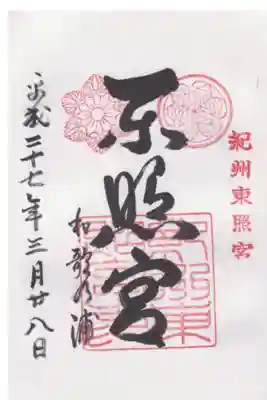 紀州東照宮
東照宮
和歌の浦
平成二十七年三月廿八日